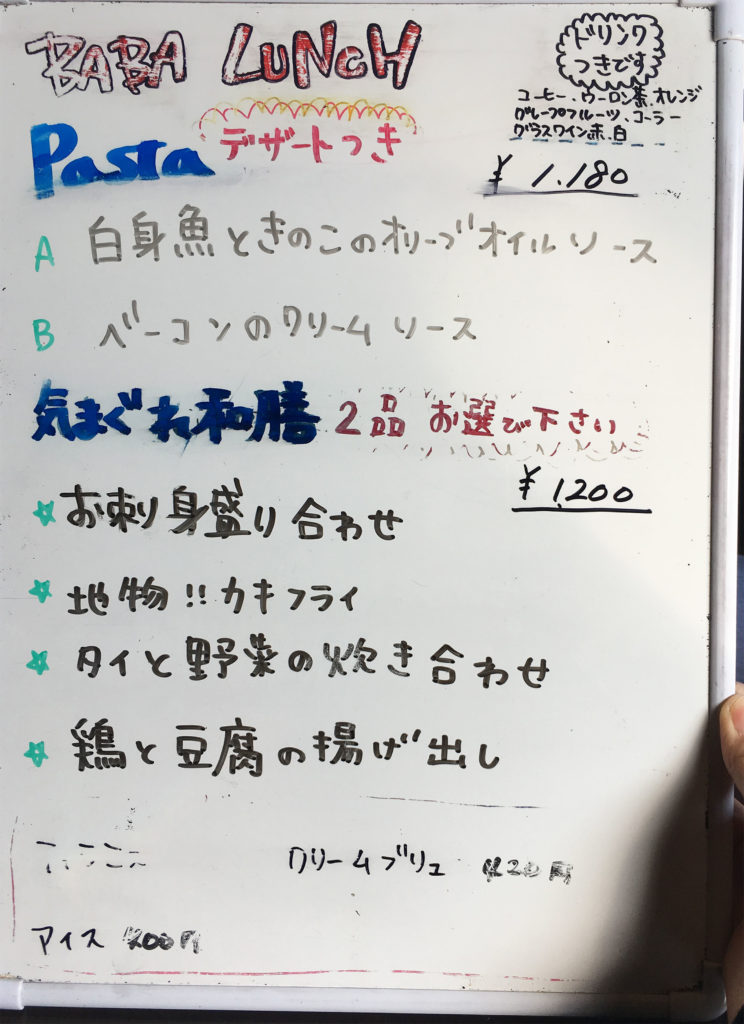 BABA LUNCH
ドリンク
つきです
コーヒー、ウーロン茶、オレンジ
グレープフルーツ、コーラー
グラスワイン赤、白
デザートつき
Pasta
¥ 1.180
A 白身魚ときのこのオリーブオイルソース
B ベーコンのクリームソース
気まぐれ和膳 2品 お選び下さい
¥ 1,200
☆お刺身盛り合わせ
☆地物!!カキフライ
☆タイと野菜の炊き合わせ
☆鶏と豆腐の揚げ出し
クリームブリュ 420円
アイス 400円